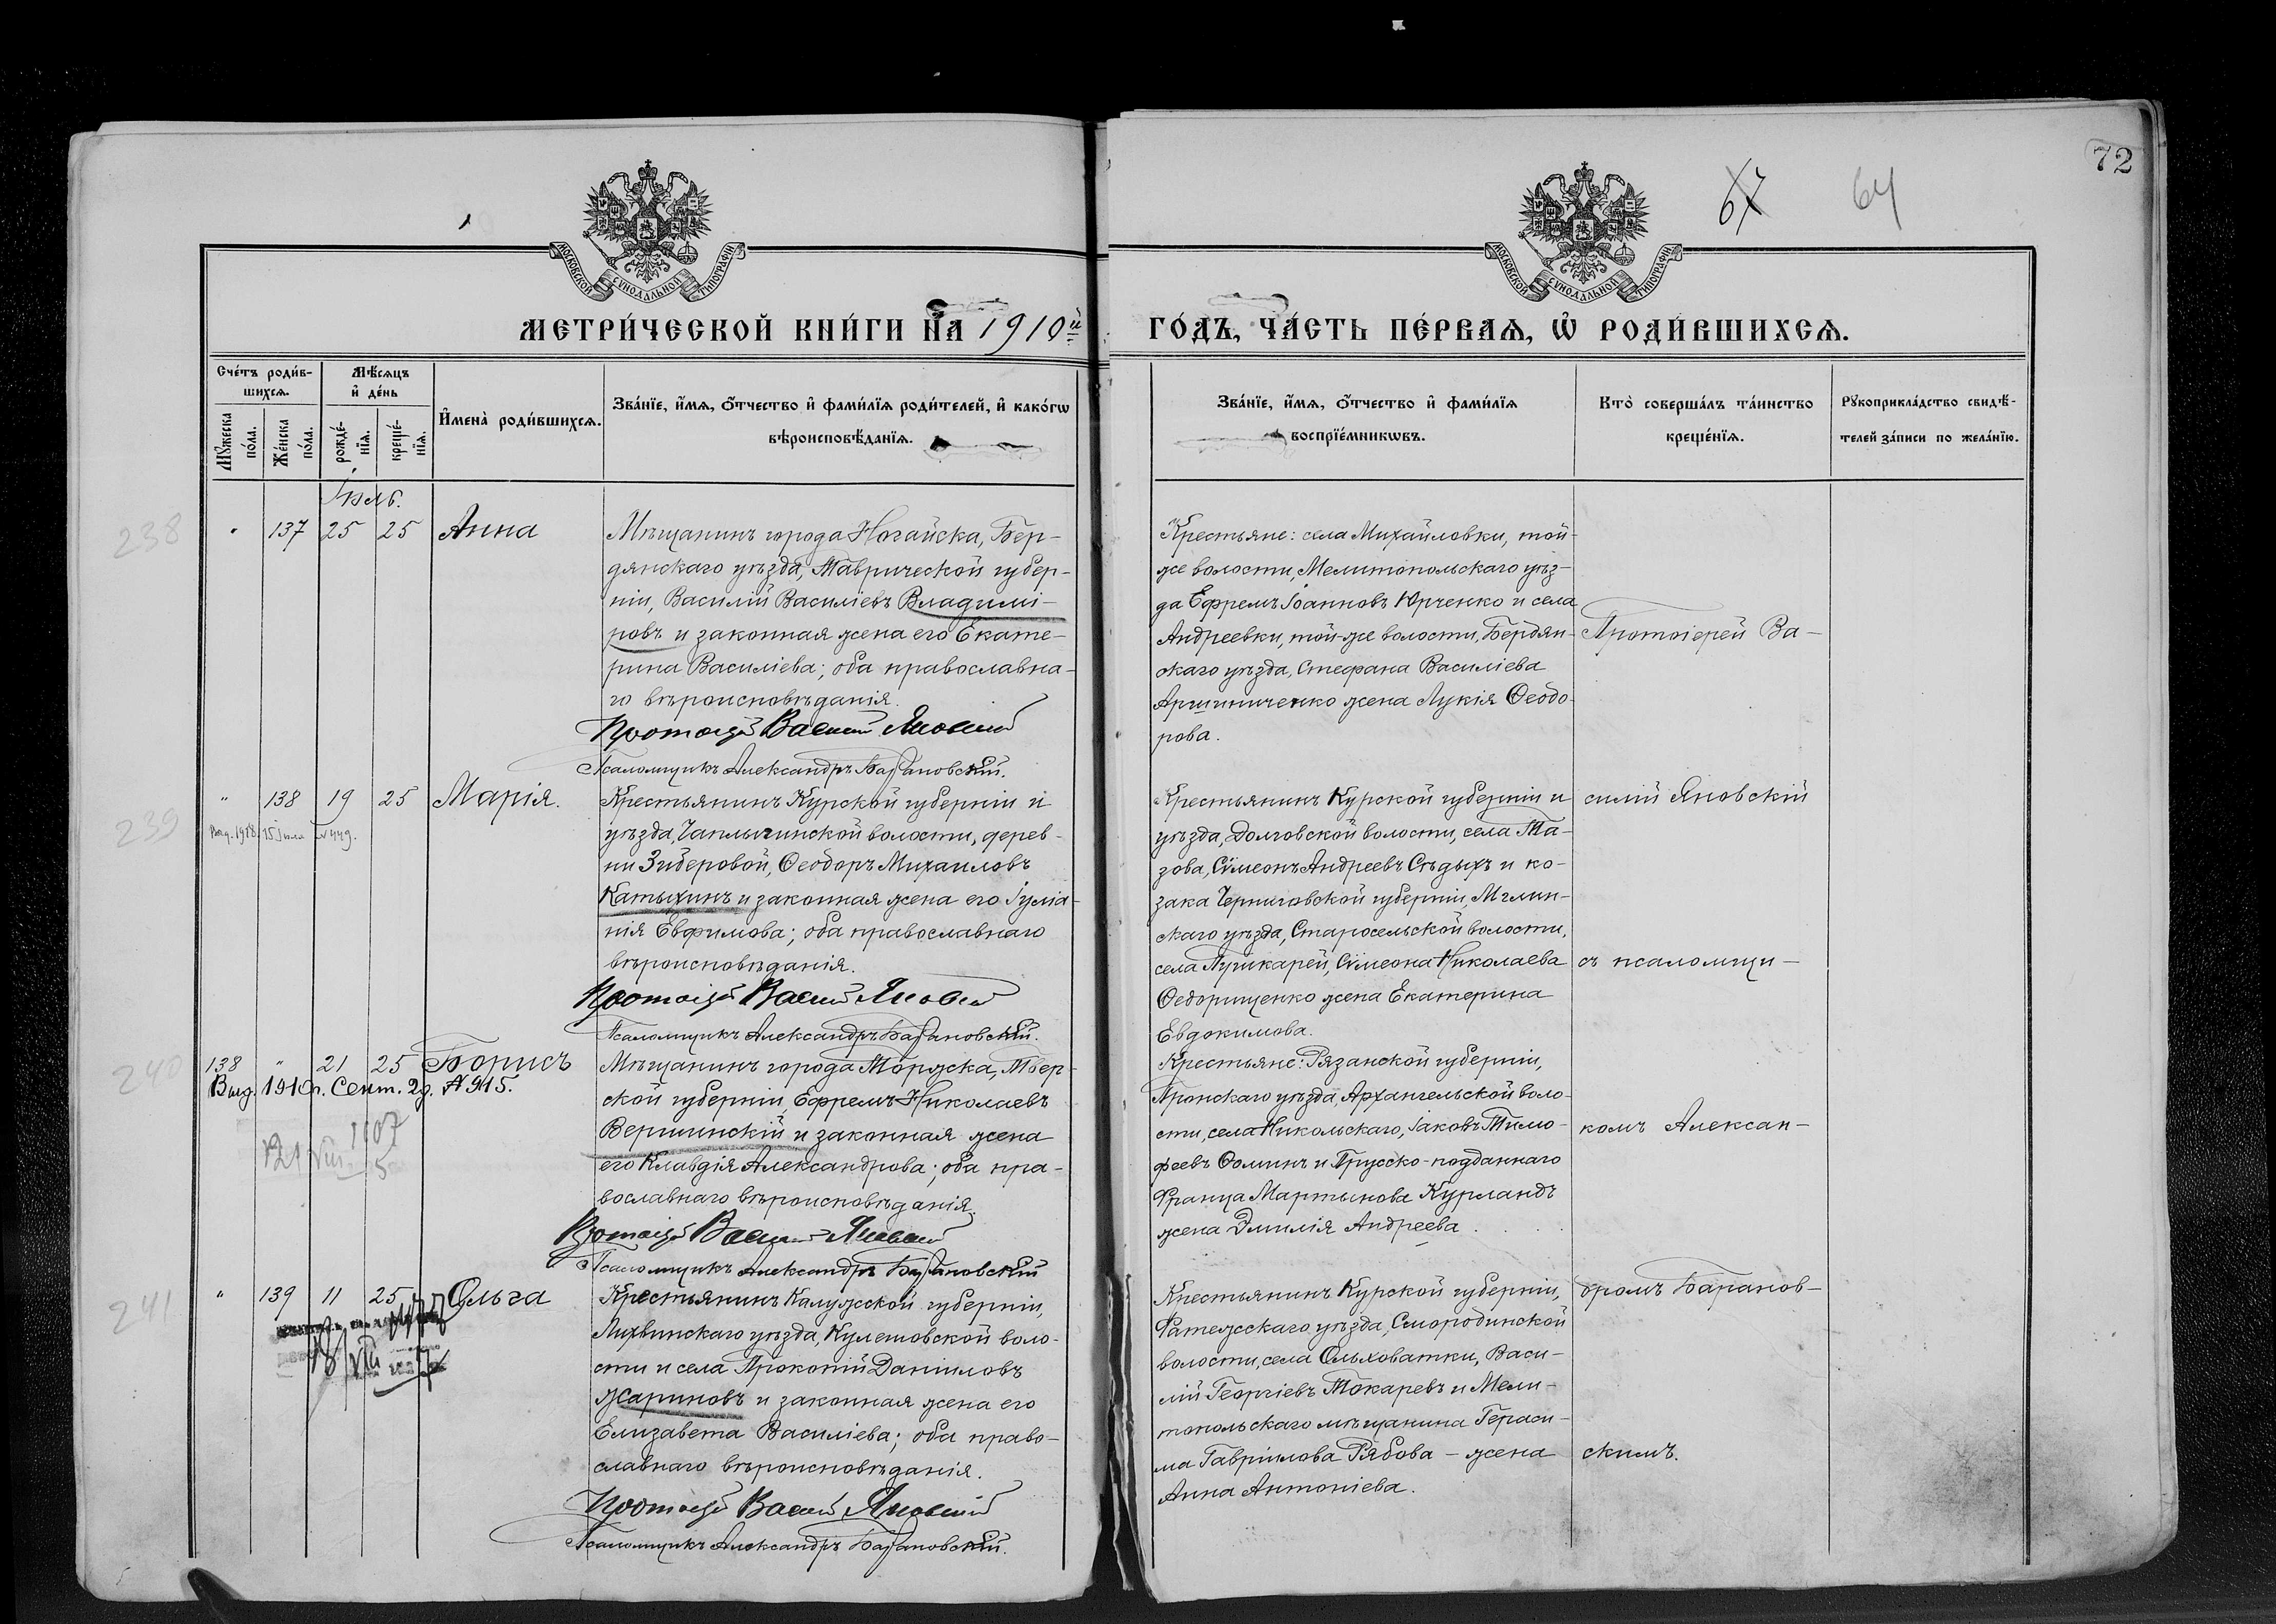 72
67
64
МОСКОВСКОЙ СУНОДАЛЬНОЙ ТИПОГРАФІИ
МОСКОВСКОЙ СУНОДАЛЬНОЙ ТИПОГРАФІИ
МЕТРИ́ЧЕСКОЙ КНИ́ГИ НА 1910й ГО́ДЪ, ЧА́СТЬ ПЕ́РВАѦ, Ѡ РОДИ́ВШИХСѦ.
Сче́тъ роди́в-
шихсѧ.
Мꙋ́жеска
по́ла.
Же́нска
по́ла.
Мѣ́сѧцъ
и҆ де́нь
рожде́-
нїѧ.
креще́-
нїѧ.
И҆мена̀ роди́вшихсѧ.
Зва́нїе, и҆́мѧ, ѻ҆́тчество и҆ фами́лїѧ роди́телей, и҆ како́гѡ
вѣроисповѣ́данїѧ.
Зва́нїе, и҆́мѧ, ѻ҆́тчество и҆ фами́лїѧ
воспрїе́мникѡвъ.
Кто̀ соверша́лъ та́инство
креще́нїѧ.
Рꙋкоприкла́дство свидѣ́-
телей за́писи по жела́нїю.
Іюль.
238
" 137 25 25 Анна
Мѣщанинъ города Ногайска, Бер-
дянскаго уѣзда, Таврической губер-
ніи, Василій Василіевъ Владимі-
ровъ и законная жена его Екате-
рина Василіева; оба православна-
го вѣроисповѣданія.
Протоіерей Василій Яновскій
Псаломщикъ Александръ Барановскій.
Крестьяне: села Михайловки, той-
же волости, Мелитопольскаго уѣз-
да Ефремъ Іоанновъ Юрченко и села
Андреевки, той-же волости, Бердян-
скаго уѣзда, Стефана Василіева
Аршиниченко жена Лукія Ѳеодо-
рова.
Протоіерей Ва-
239
" 138 19 25 Марія.
Выд. 1918 15 Іюля №449.
Крестьянинъ Курской губерніи и
уѣзда, Чаплыгинской волости, дерев-
ни Зиберовой, Ѳеодоръ Михаиловъ
Катыхинъ и законная жена его Іуліа-
нія Евфимова; оба православнаго
вѣроисповѣданія.
Протоіерей Василій Яновскій
Псаломщикъ Александръ Барановскій.
Крестьянинъ Курской губерніи и
уѣзда, Долговской волости, села Та-
зова, Сѵмеонъ Андреевъ Сѣдыхъ и ко-
зака Черниговской губерніи, Мглин-
скаго уѣзда, Старосельской волости,
села Пушкарей, Сѵмеона Николаева
Ѳедорищенко жена Екатерина
Евдокимова.
силій Яновскій
съ псаломщи-
240
138 " 21 25 Борисъ
Выд. 1910г. Сент. 2д. №915.
1107
21 VIII 5
Мѣщанинъ города Торжска, Твер-
ской губерніи, Ефремъ Николаевъ
Вершинскій и законная жена
его Клавдія Александрова; оба пра-
вославнаго вѣроисповѣданія.
Протоіерей Василій Яновскій
Псаломщикъ Александръ Барановскій
Крестьяне: Рязанской губерніи,
Пронскаго уѣзда, Архангельской воло-
сти, села Никольскаго, Іаковъ Тимо-
феевъ Ѳоминъ и Прусско-подданнаго
Франца Мартынова Курландъ
жена Эмилія Андреева.
комъ Алексан-
241
" 139 11 25 Ольга
18/VIII
Крестьянинъ Калужсской губерніи,
Лихвинскаго уѣзда, Кулешовской воло-
сти и села Прокопій Даніиловъ
Жариновъ и законная жена его
Елизавета Василіева; оба право-
славнаго вѣроисповѣданія.
Протоіерей Василій Яновскій
Псаломщикъ Александръ Барановскій.
Крестьянинъ Курской губерніи,
Фатежсскаго уѣзда, Смородинской
волости, села Ольховатки, Васи-
лій Георгіевъ Токаревъ и Мели-
топольскаго мѣщанина Гераси-
ма Гавріилова Рябова - жена
Анна Антоніева.
дромъ Баранов-
скимъ.